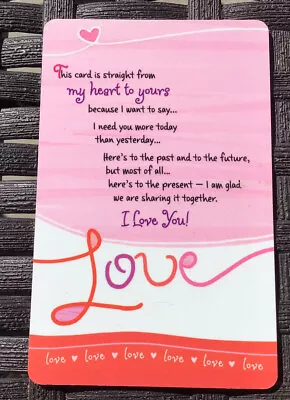 This card is straight from
my heart to yours
because I want to say...
I need you more today
than yesterday...
Here's to the past and to the future,
but most of all...
here's to the present — I am glad
we are sharing it together.
I Love You!
Love
love ♥ love ♥ love ♥ love ♥ love ♥ love